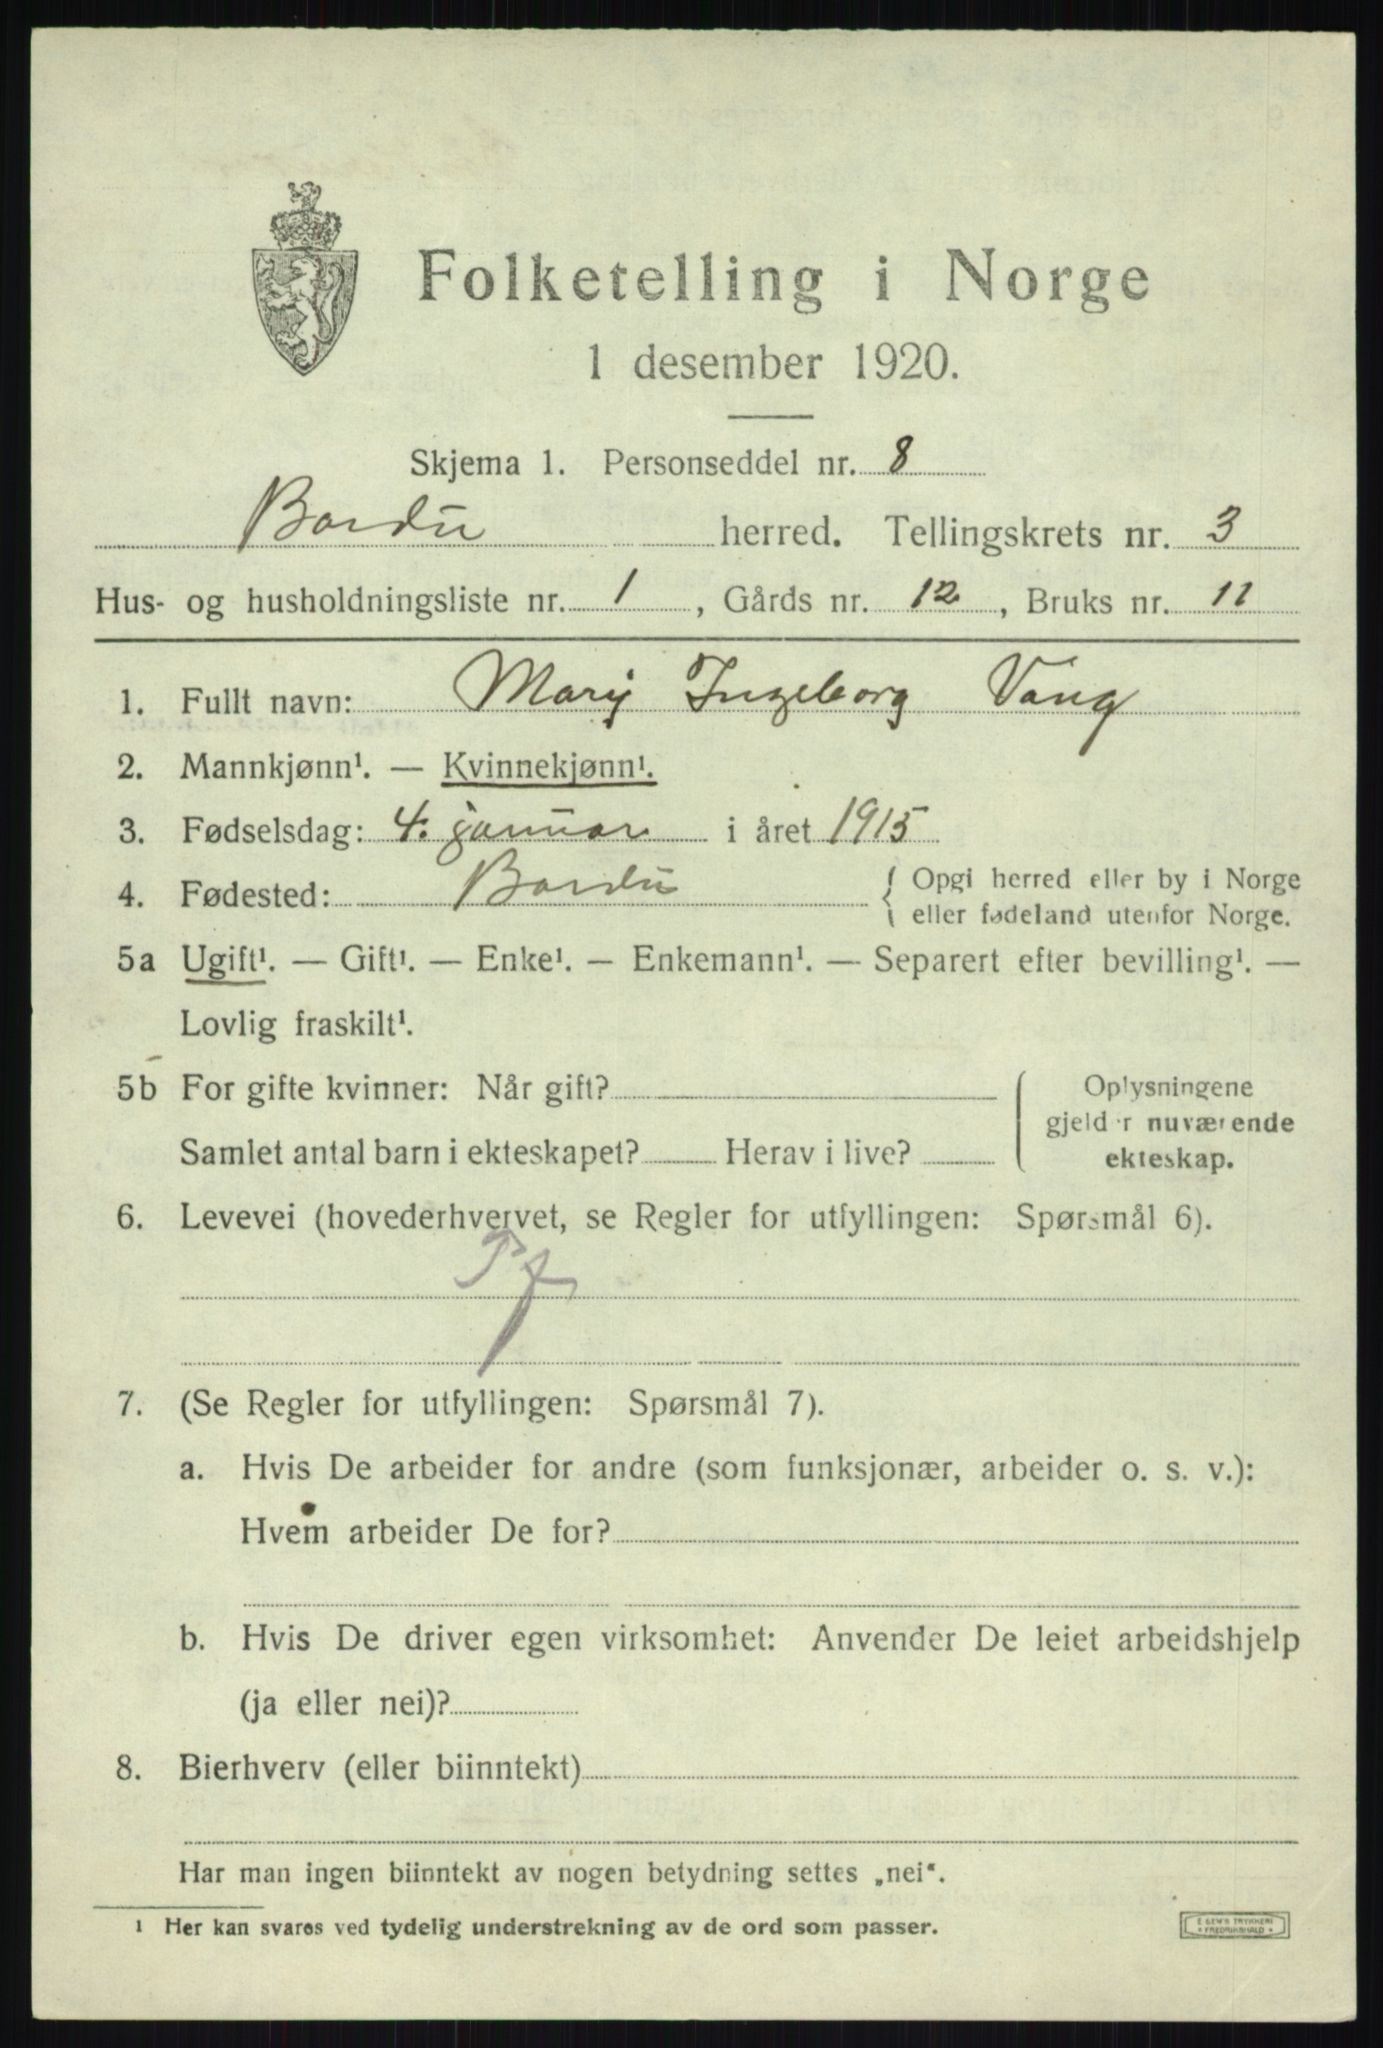 Folketelling i Norge
1 desember 1920.
Skjema 1. Personseddel nr. 8
Bardu herred. Tellingskrets nr. 3
Hus- og husholdningsliste nr. 1, Gårds nr. 12, Bruks nr. 11
1. Fullt navn: Mary Ingeborg Vang
2. Mannkjønn¹. — Kvinnekjønn¹.
3. Fødselsdag: 4. januar i året 1915
4. Fødested: Bardu { Opgi herred eller by i Norge
eller fødeland utenfor Norge.
5a Ugift¹. — Gift¹. — Enke¹. — Enkemann¹. — Separert efter bevilling¹. —
Lovlig fraskilt¹.
5b For gifte kvinner: Når gift? Oplysningene
gjelder nuværende
Samlet antal barn i ekteskapet? Herav i live? ekteskap.
6. Levevei (hovederhvervet, se Regler for utfyllingen: Spørsmål 6).
7. (Se Regler for utfyllingen: Spørsmål 7).
a. Hvis De arbeider for andre (som funksjonær, arbeider o. s. v.):
Hvem arbeider De for?
b. Hvis De driver egen virksomhet: Anvender De leiet arbeidshjelp
(ja eller nei)?
8. Bierhverv (eller biinntekt)
Har man ingen biinntekt av nogen betydning settes „nei“.
¹ Her kan svares ved tydelig understrekning av de ord som passer.